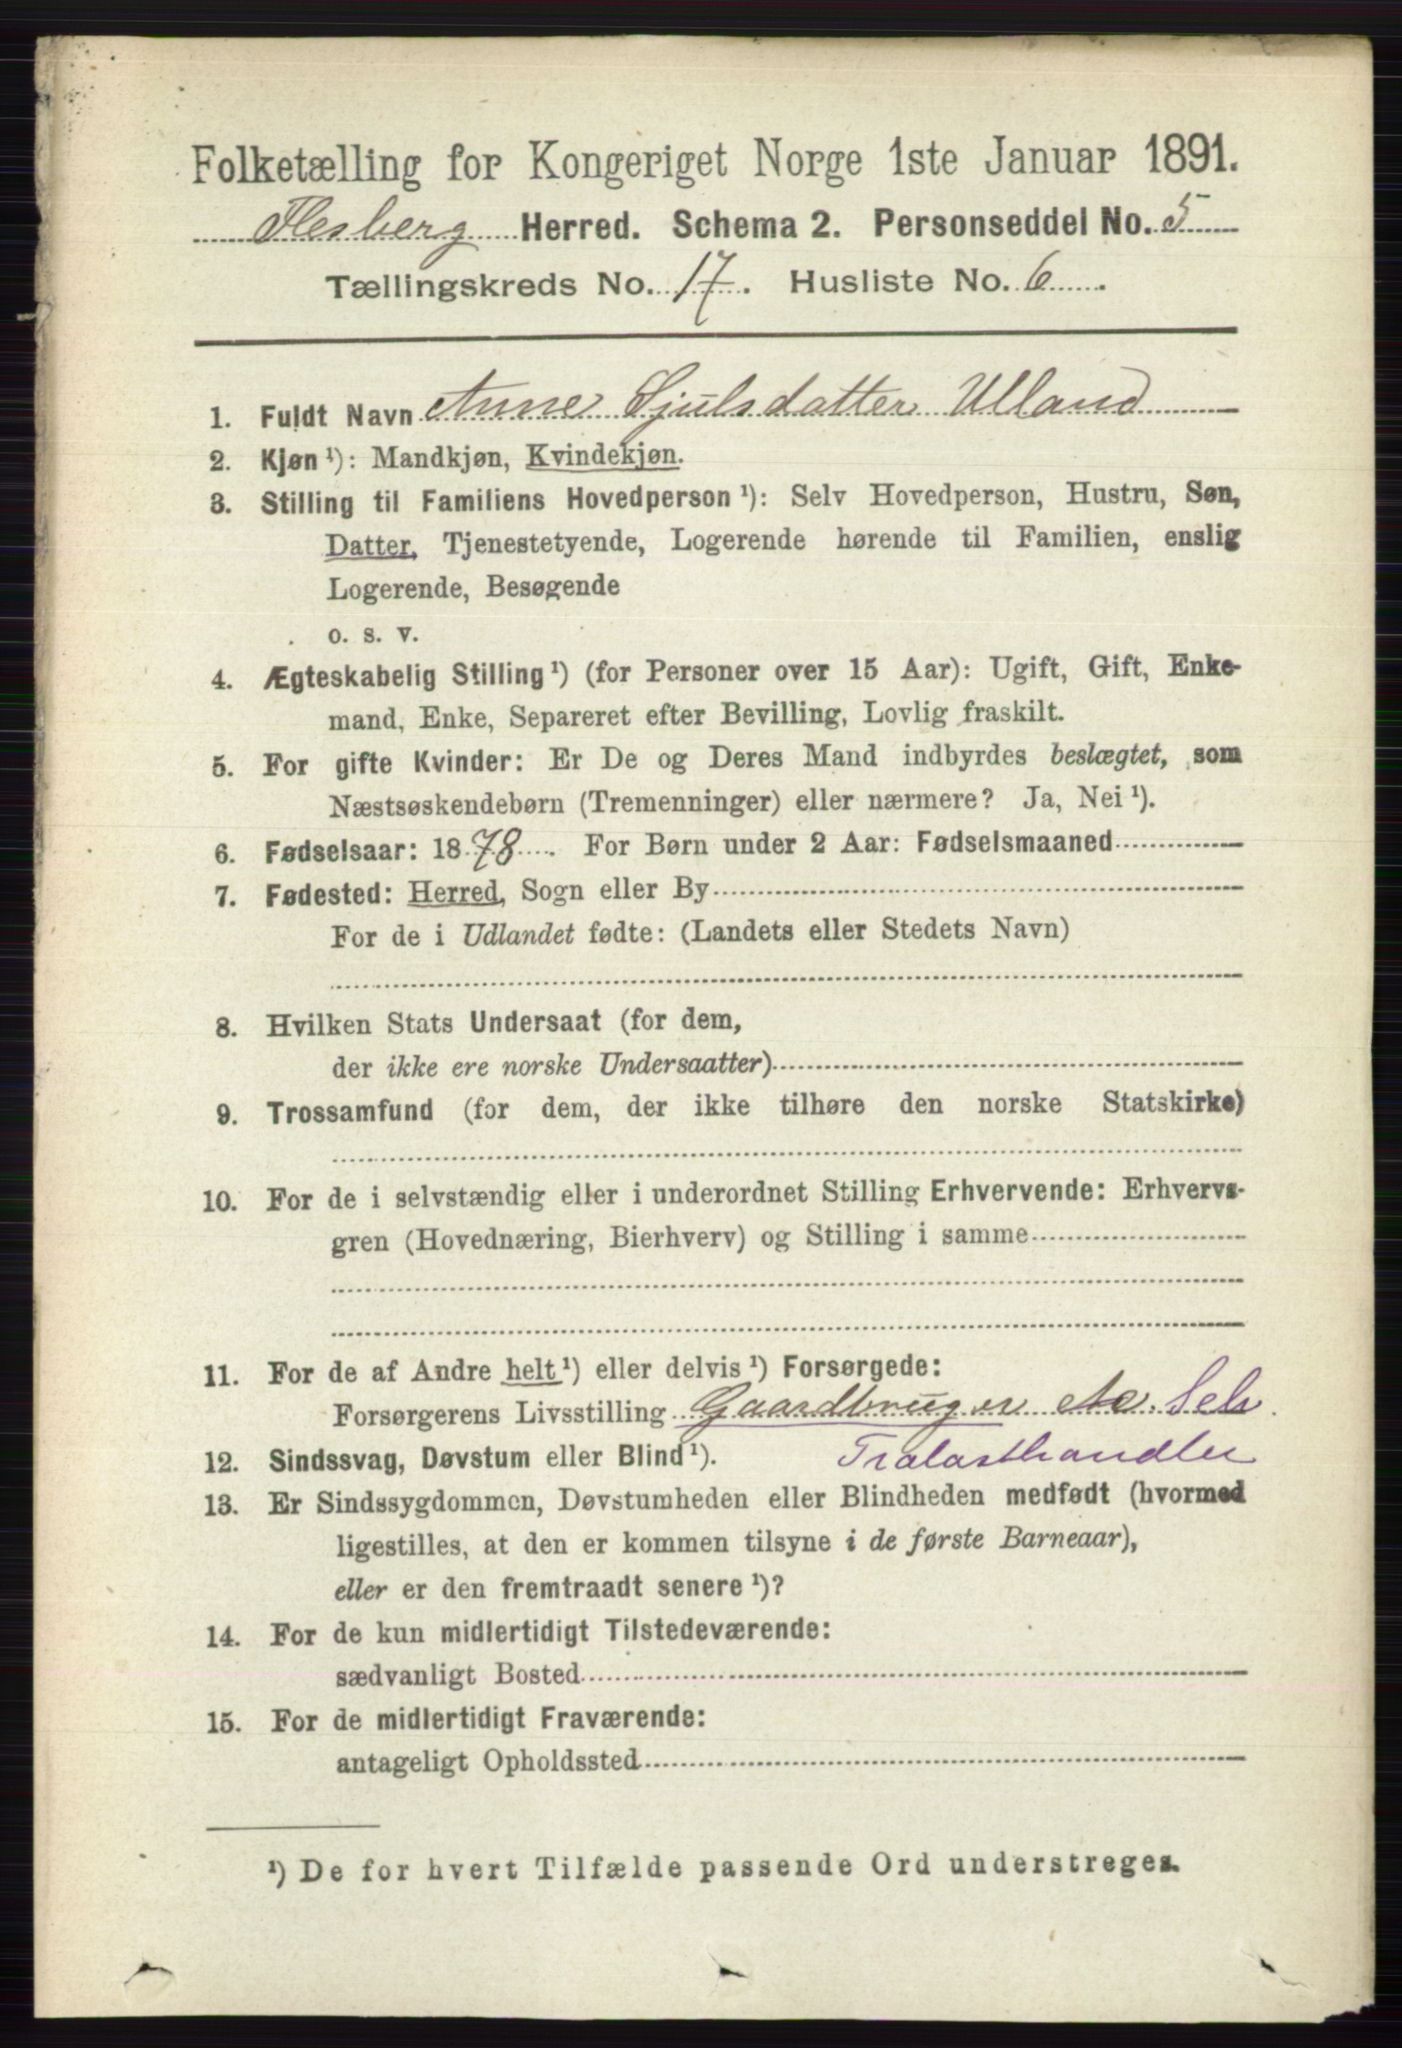 Folketælling for Kongeriget Norge 1ste Januar 1891.
Flesberg Herred. Schema 2. Personseddel No. 5
Tællingskreds No. 17. Husliste No. 6.
1. Fuldt Navn Anne Gjulsdatter Ulland
2. Kjøn ¹): Mandkjøn, Kvindekjøn.
3. Stilling til Familiens Hovedperson ¹): Selv Hovedperson, Hustru, Søn,
Datter, Tjenestetyende, Logerende hørende til Familien, enslig
Logerende, Besøgende
o. s. v.
4. Ægteskabelig Stilling ¹) (for Personer over 15 Aar): Ugift, Gift, Enke-
mand, Enke, Separeret efter Bevilling, Lovlig fraskilt.
5. For gifte Kvinder: Er De og Deres Mand indbyrdes beslægtet, som
Næstsøskendebørn (Tremenninger) eller nærmere? Ja, Nei ¹).
6. Fødselsaar: 1878. For Børn under 2 Aar: Fødselsmaaned
7. Fødested: Herred, Sogn eller By
For de i Udlandet fødte: (Landets eller Stedets Navn)
8. Hvilken Stats Undersaat (for dem,
der ikke ere norske Undersaatter)
9. Trossamfund (for dem, der ikke tilhøre den norske Statskirke)
10. For de i selvstændig eller i underordnet Stilling Erhvervende: Erhvervs-
gren (Hovednæring, Bierhverv) og Stilling i samme
11. For de af Andre helt ¹) eller delvis ¹) Forsørgede:
Forsørgerens Livsstilling Gaardbruger Selv
12. Sindssvag, Døvstum eller Blind ¹). Tralasthandler
13. Er Sindssygdommen, Døvstumheden eller Blindheden medfødt (hvormed
ligestilles, at den er kommen tilsyne i de første Barneaar),
eller er den fremtraadt senere ¹)?
14. For de kun midlertidigt Tilstedeværende:
sædvanligt Bosted
15. For de midlertidigt Fraværende:
antageligt Opholdssted
¹) De for hvert Tilfælde passende Ord understreges.